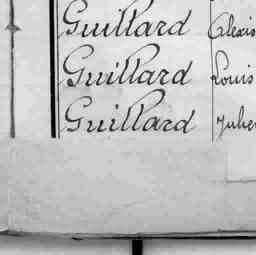 Guillard Alexis
Guillard Louis
Guillard Julien